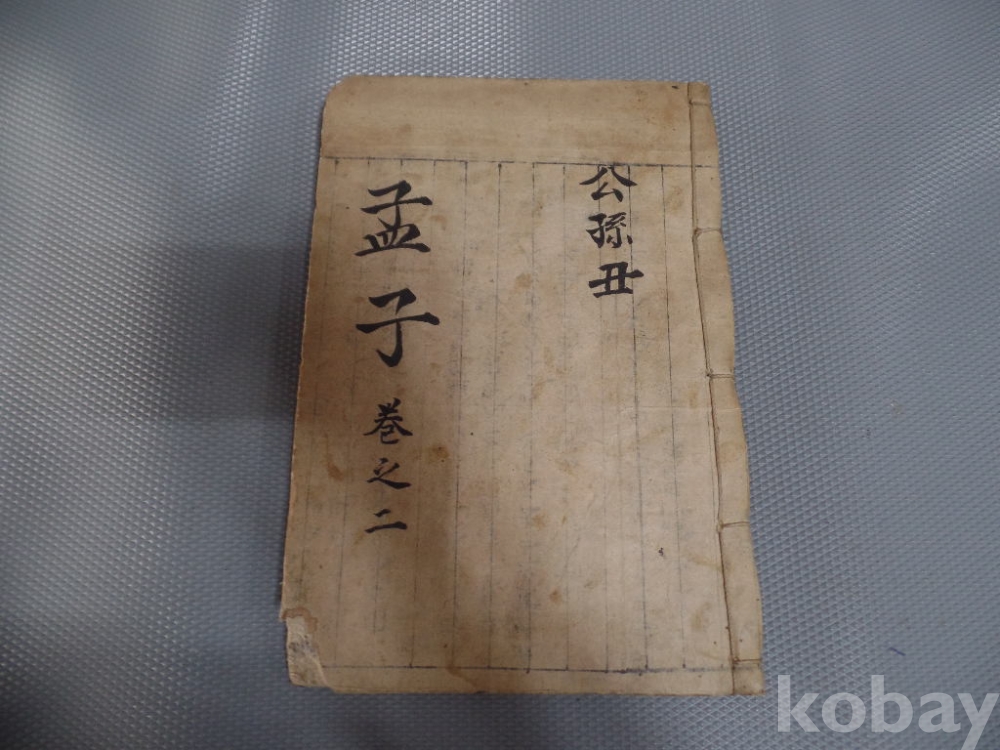 公孫丑
孟子 巻之二
kobay